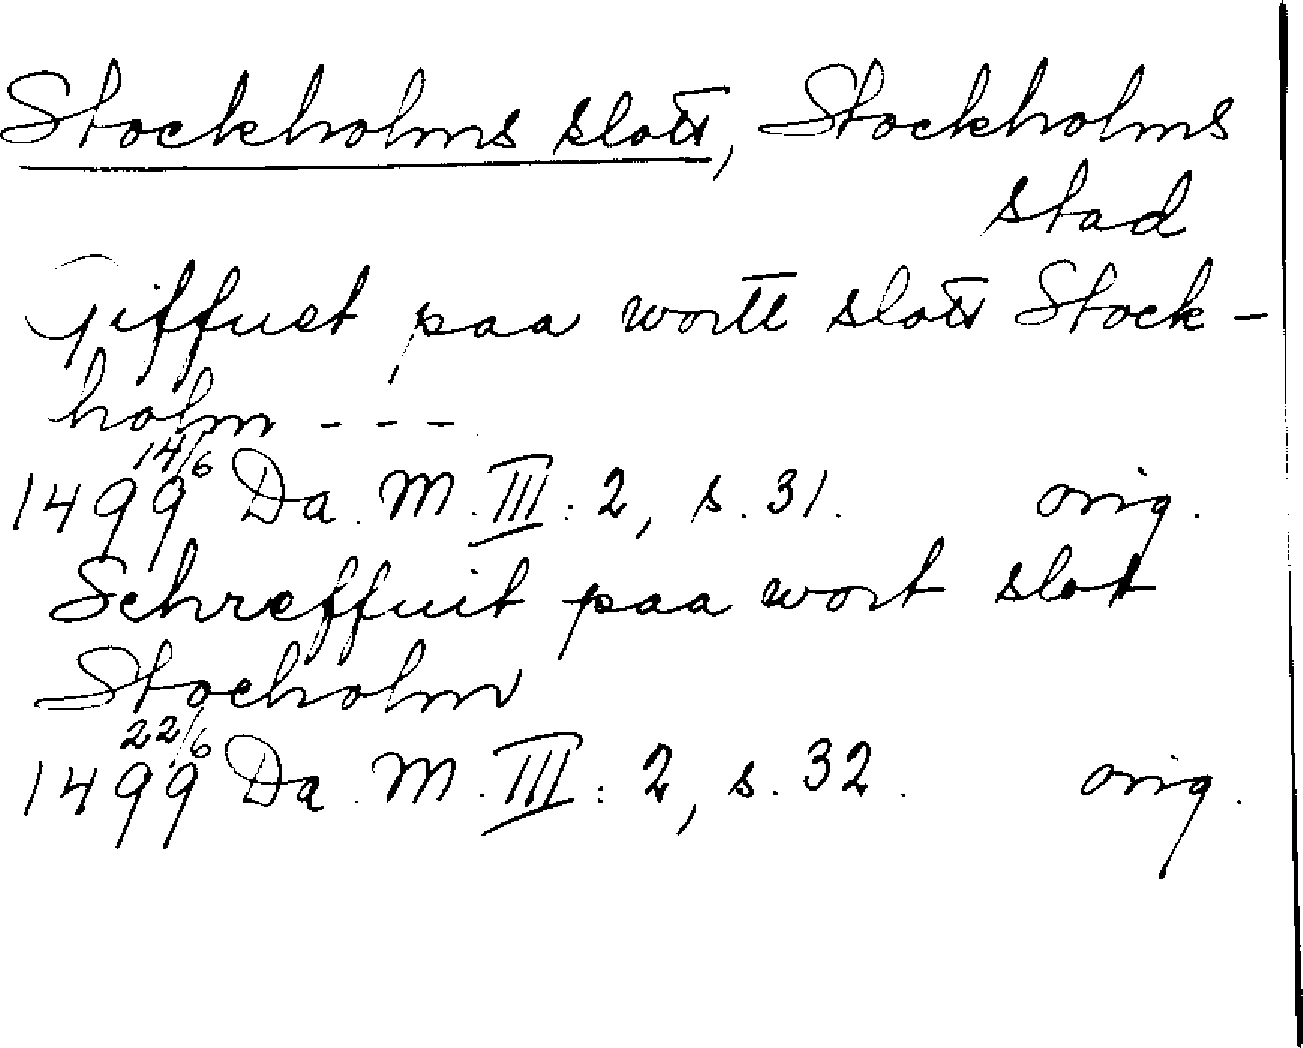 Stockholms slott, Stockholms
stad
Giffuet paa wortt slott Stock-
holm ---
14/6
1499 Da. M. III: 2, s. 31. orig.
Schreffuit paa wort slot
Stocholm
22/6
1499 Da. M. III: 2, s. 32. orig.